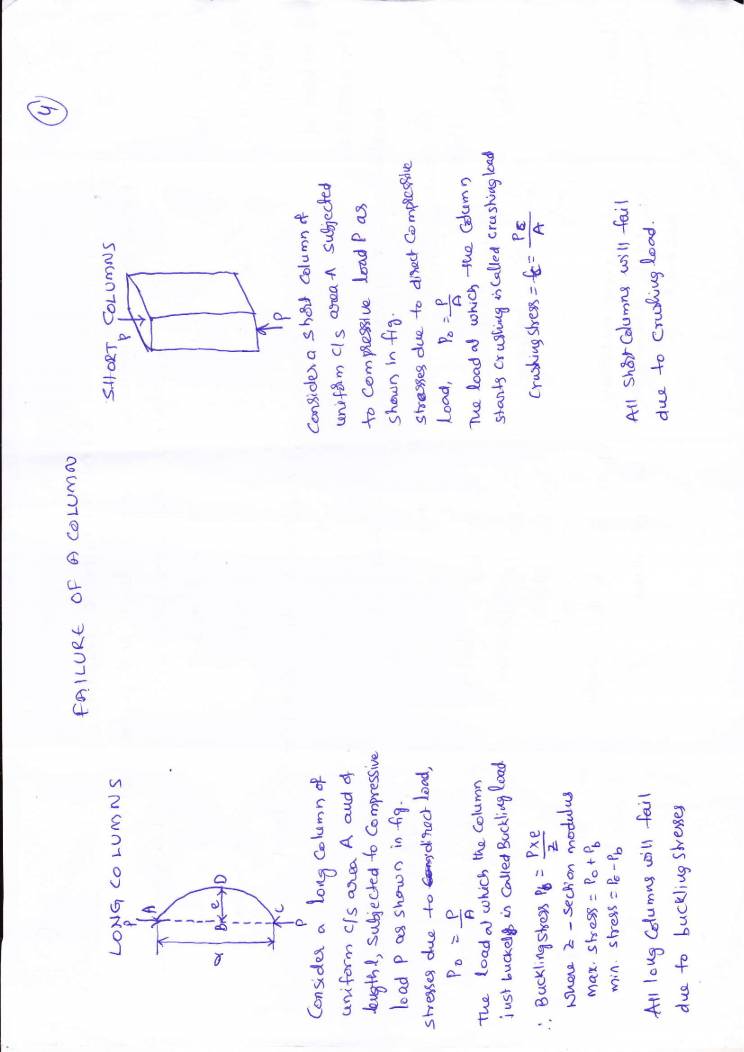 4
FAILURE OF A COLUMN
LONG COLUMNS
P
A
B
e
D
C
P
Consider a long Column of
uniform c/s area A and of
length l, subjected to Compressive
load P as shown in fig.
stresses due to direct load,
P0 = P/A
The load at which the column
just buckels is Called Buckling load
∴ Buckling stress Pb = P×e/Z
where z - section modulus
max. stress = P0 + Pb
min. stress = P0 - Pb
All long Columns will fail
due to buckling stresses
SHORT COLUMNS
P
P
Consider a short Column of
uniform c/s area A subjected
to compressive load P as
shown in fig.
stresses due to direct Compressive
load, P0 = P/A
The load at which the Column
starts crushing is Called crushing load
Crushing stress = fc = Pc/A
All short Columns will fail
due to Crushing load.